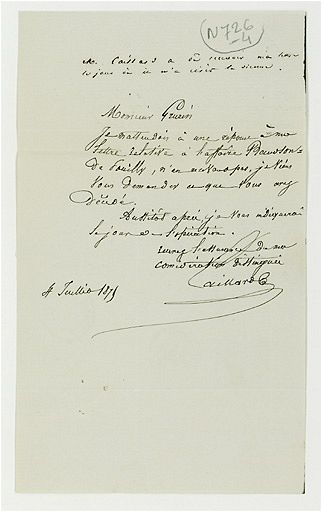 N 726
-4
Mr Caissard a dû recevoir ma lettre
le jour où il m'a écrit la sienne.
Monsieur Guérin
Je m'attendais à une réponse à ma
lettre relative à l'affaire
de Pouilly, n'en recevant pas, je viens
vous demander ce que vous avez
décidé.
Aussitôt après, je vous indiquerai
le jour de l'opération.
Recevez l'assurance de ma
considération distinguée
Caillard
4 Juillet 1875